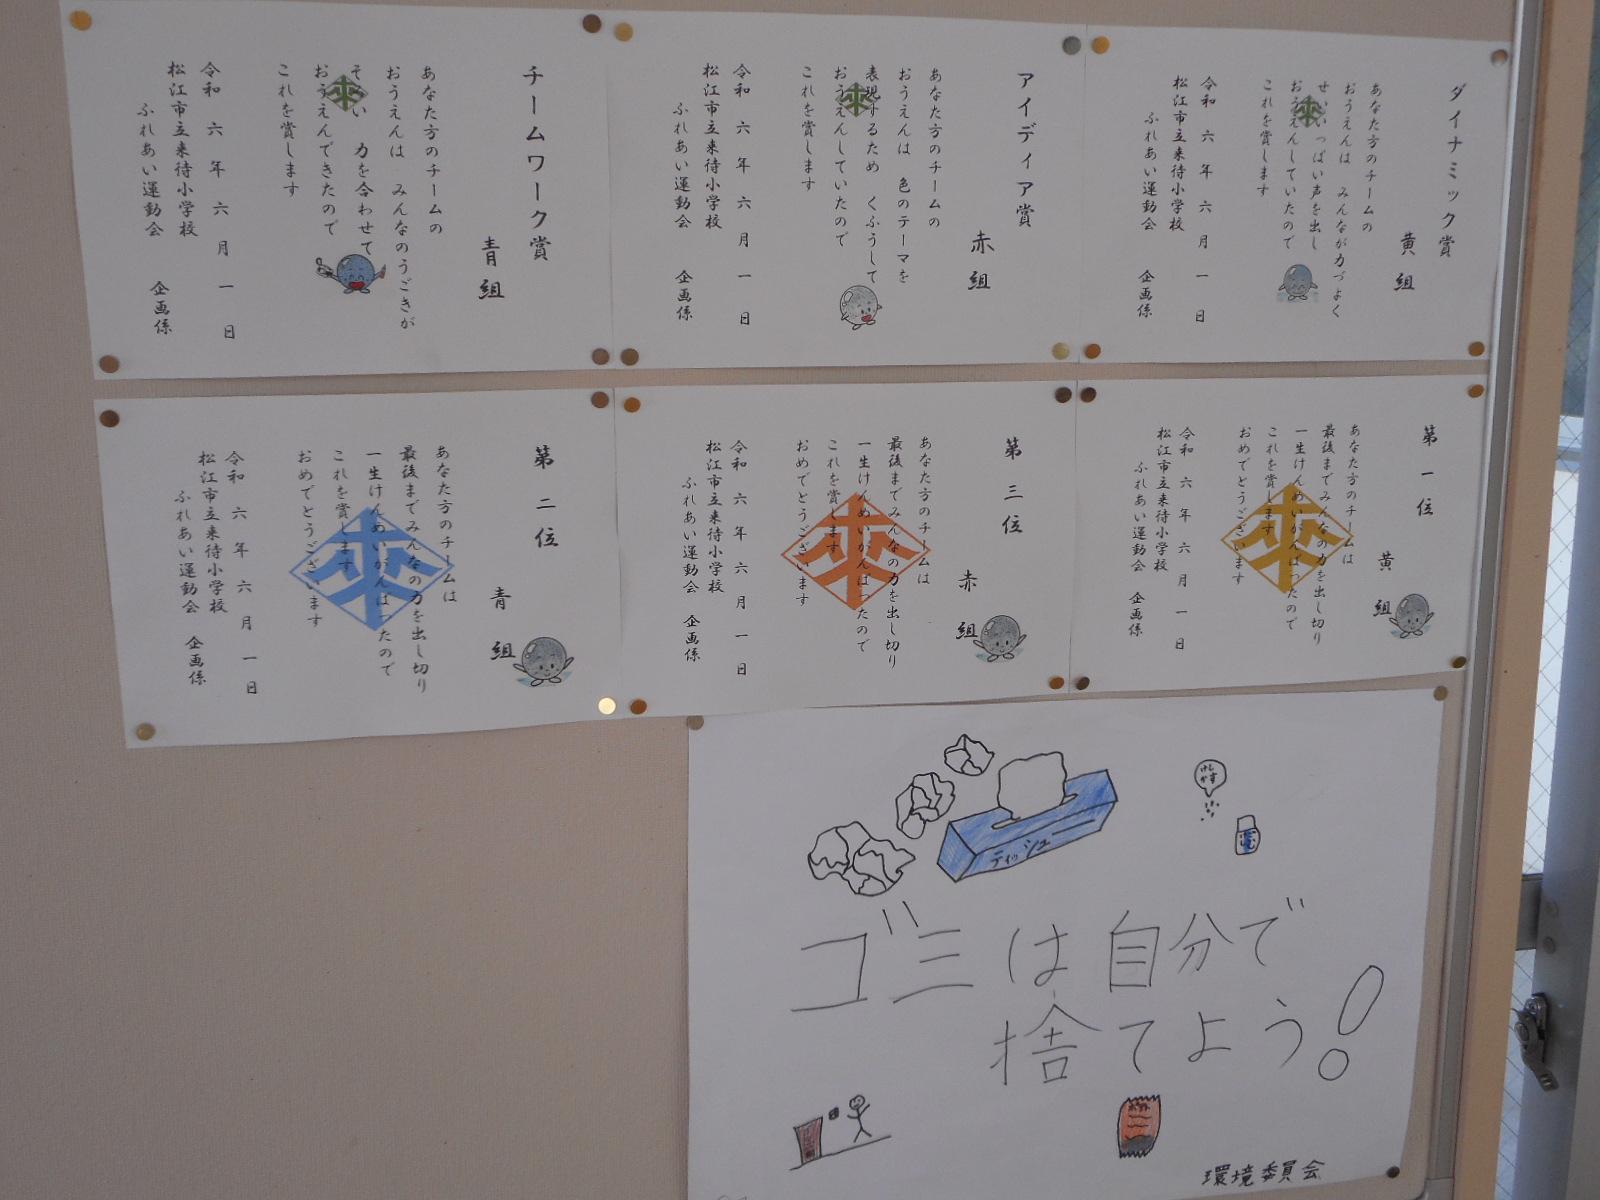 ダイナミック賞
黄組
あなた方のチームの
おうえんは みんなが力づよく
せいいっぱい声を出し
おうえんしていたので
これを賞します
令和 六 年 六 月 一 日
松江市立来待小学校
ふれあい運動会 企画係
アイディア賞
赤組
あなた方のチームの
おうえんは 色のテーマを
表現するため くふうして
おうえんしていたので
これを賞します
令和 六 年 六 月 一 日
松江市立来待小学校
ふれあい運動会 企画係
チームワーク賞
青組
あなた方のチームの
おうえんは みんなのうごきが
そろい 力を合わせて
おうえんできたので
これを賞します
令和 六 年 六 月 一 日
松江市立来待小学校
ふれあい運動会 企画係
第一位
黄組
あなた方のチームは
最後までみんなの力を出し切り
一生けんめいがんばったので
これを賞します
おめでとうございます
令和 六 年 六 月 一 日
松江市立来待小学校
ふれあい運動会 企画係
第三位
赤組
あなた方のチームは
最後までみんなの力を出し切り
一生けんめいがんばったので
これを賞します
おめでとうございます
令和 六 年 六 月 一 日
松江市立来待小学校
ふれあい運動会 企画係
第二位
青組
あなた方のチームは
最後までみんなの力を出し切り
一生けんめいがんばったので
これを賞します
おめでとうございます
令和 六 年 六 月 一 日
松江市立来待小学校
ふれあい運動会 企画係
ティッシュ
けしかす
ゴミは自分で
捨てよう!
環境委員会